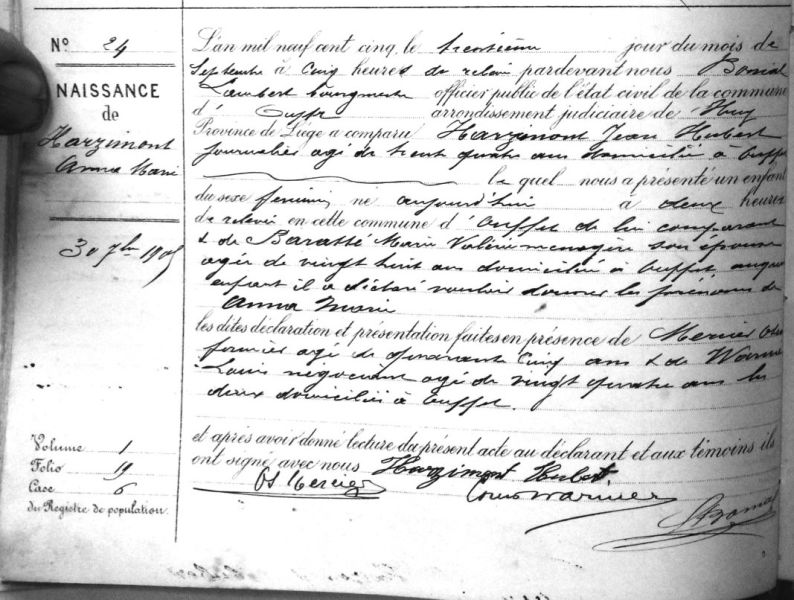 N° 24
NAISSANCE
de
Harzimont
Anna Marie
30 7bre 1905
Volume 1
Folio 19
Case 6
du Registre de population.
L'an mil neuf cent cinq, le trentième jour du mois de
Septembre à cinq heures de relevée pardevant nous Bonial
Lambert bourgmestre officier public de l'état civil de la commune
d' Ouffet arrondissement judiciaire de Huy
Province de Liège a comparu Harzimont Jean Hubert
journalier agé de trent quatre ans domicilié à Ouffet
le quel nous a présenté un enfant
du sexe feminin né aujourd'hui à deux heures
de relevée en cette commune d' Ouffet de lui comparant
& de Baratte Marie Valérie menagère son épouse
agée de vingt huit ans domiciliée à Ouffet, auquel
enfant il a déclaré vouloir donner les prénoms de
Anna Marie
les dites déclaration et présentation faites en présence de Mercier
fermier agé de quarant cinq ans & de Warnier
Louis négociant agé de vingt quatre ans les
deux domiciliés à Ouffet.
et après avoir donné lecture du présent acte au déclarant et aux témoins ils
ont signé avec nous Harzimont Hubert.
Mercier Louis Warnier